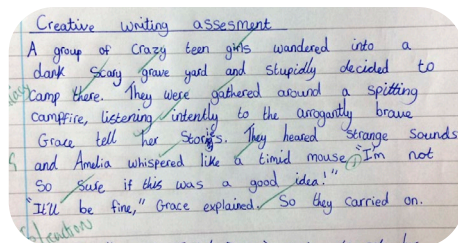 Creative writing assesment
A group of crazy teen girls wandered into a
dark scary grave yard and stupidly decided to
camp there. They were gathered around a spitting
campfire, listening intently to the arrogantly brave
Grace tell her stories. They heard strange sounds
and Amelia whispered like a timid mouse, "I'm not
so sure if this was a good idea!"
"It'll be fine," Grace explained. So they carried on.